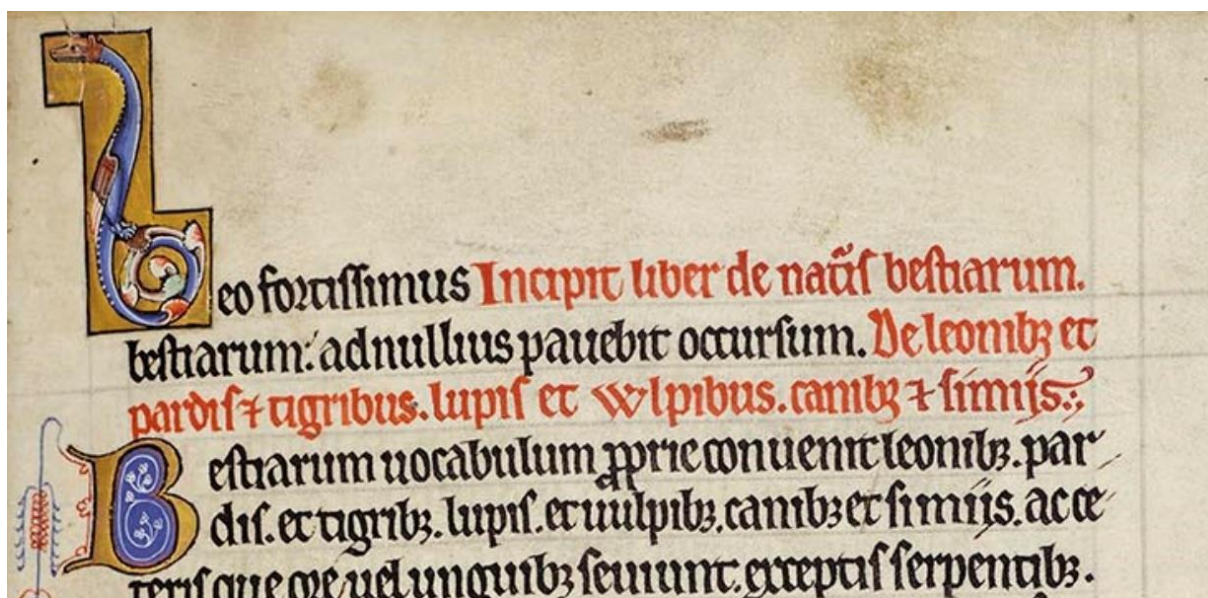 Leo fortissimus Incipit liber de nat̃is bestiarum.
bestiarum: ad nullius pauebit occursum. De leonibꝫ et
pardis ⁊ tigribus. lupis et wlpibus. canibꝫ ⁊ simijs.
Bestiarum uocabulum ꝓprie conuenit leonibꝫ. par
dis. et tigribꝫ. lupis. et uulpibꝫ. canibꝫ et simijs. ac ce
teris que ore uel unguibꝫ seuiunt. exceptis serpentibꝫ.